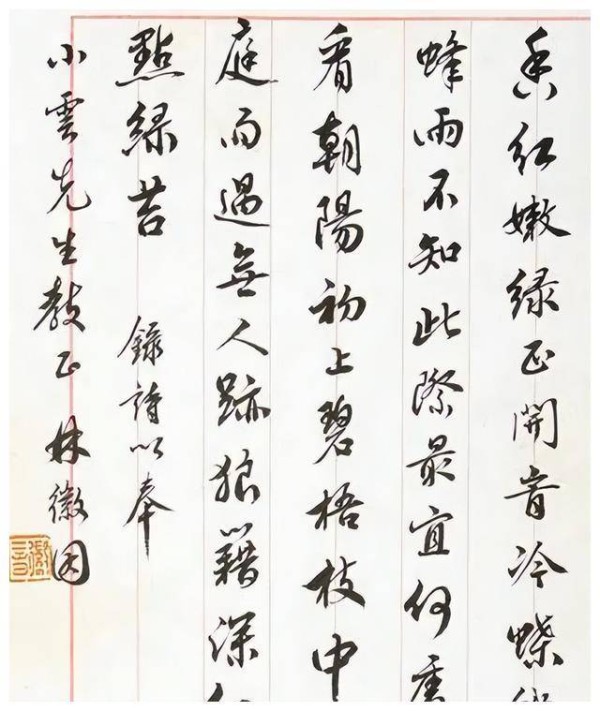 香红嫩绿正開旹冷蝶
蜂兩不知此際最宜何處
看朝陽初上碧梧枝中
庭雨過無人跡狼籍深
點绿苔 錄詩以奉
小雲先生教正 林徽因